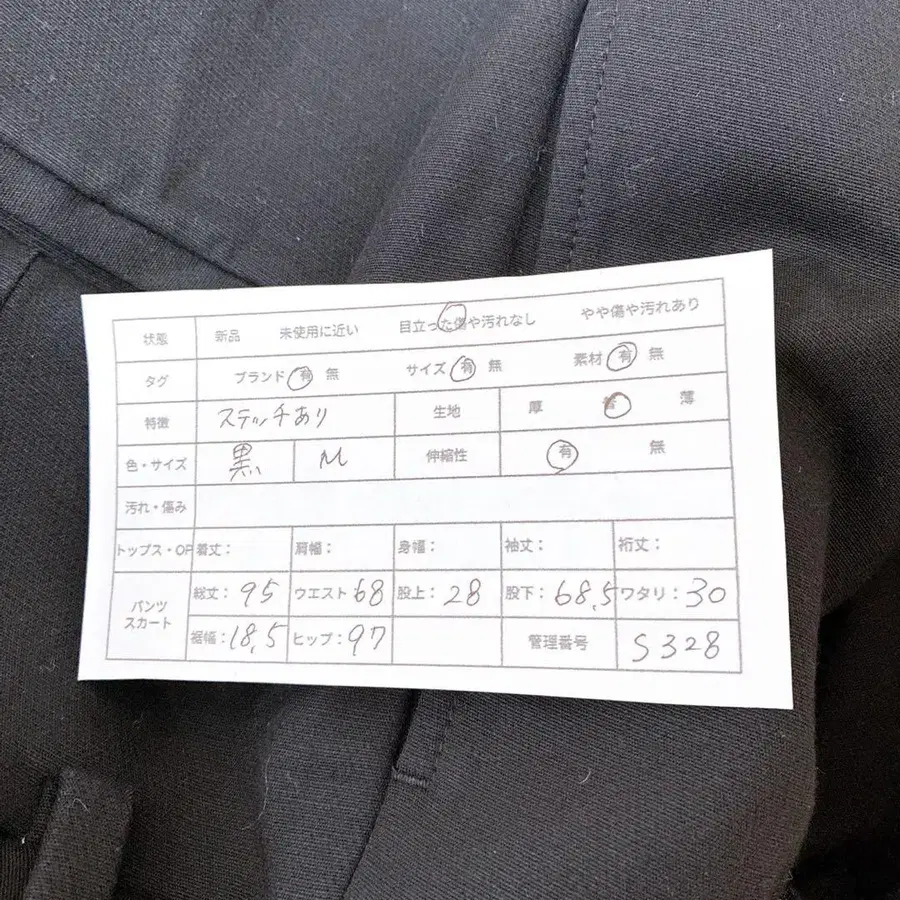 状態 新品 未使用に近い 目立った傷や汚れなし やや傷や汚れあり
タグ ブランド 有 無 サイズ 有 無 素材 有 無
特徴 ステッチあり 生地 厚 普 薄
色・サイズ 黒 M 伸縮性 有 無
汚れ・傷み
トップス・OP 着丈: 肩幅: 身幅: 袖丈: 裄丈:
パンツ スカート 総丈: 95 ウエスト 68 股上: 28 股下: 68.5 ワタリ: 30
裾幅: 18.5 ヒップ: 97 管理番号 S328